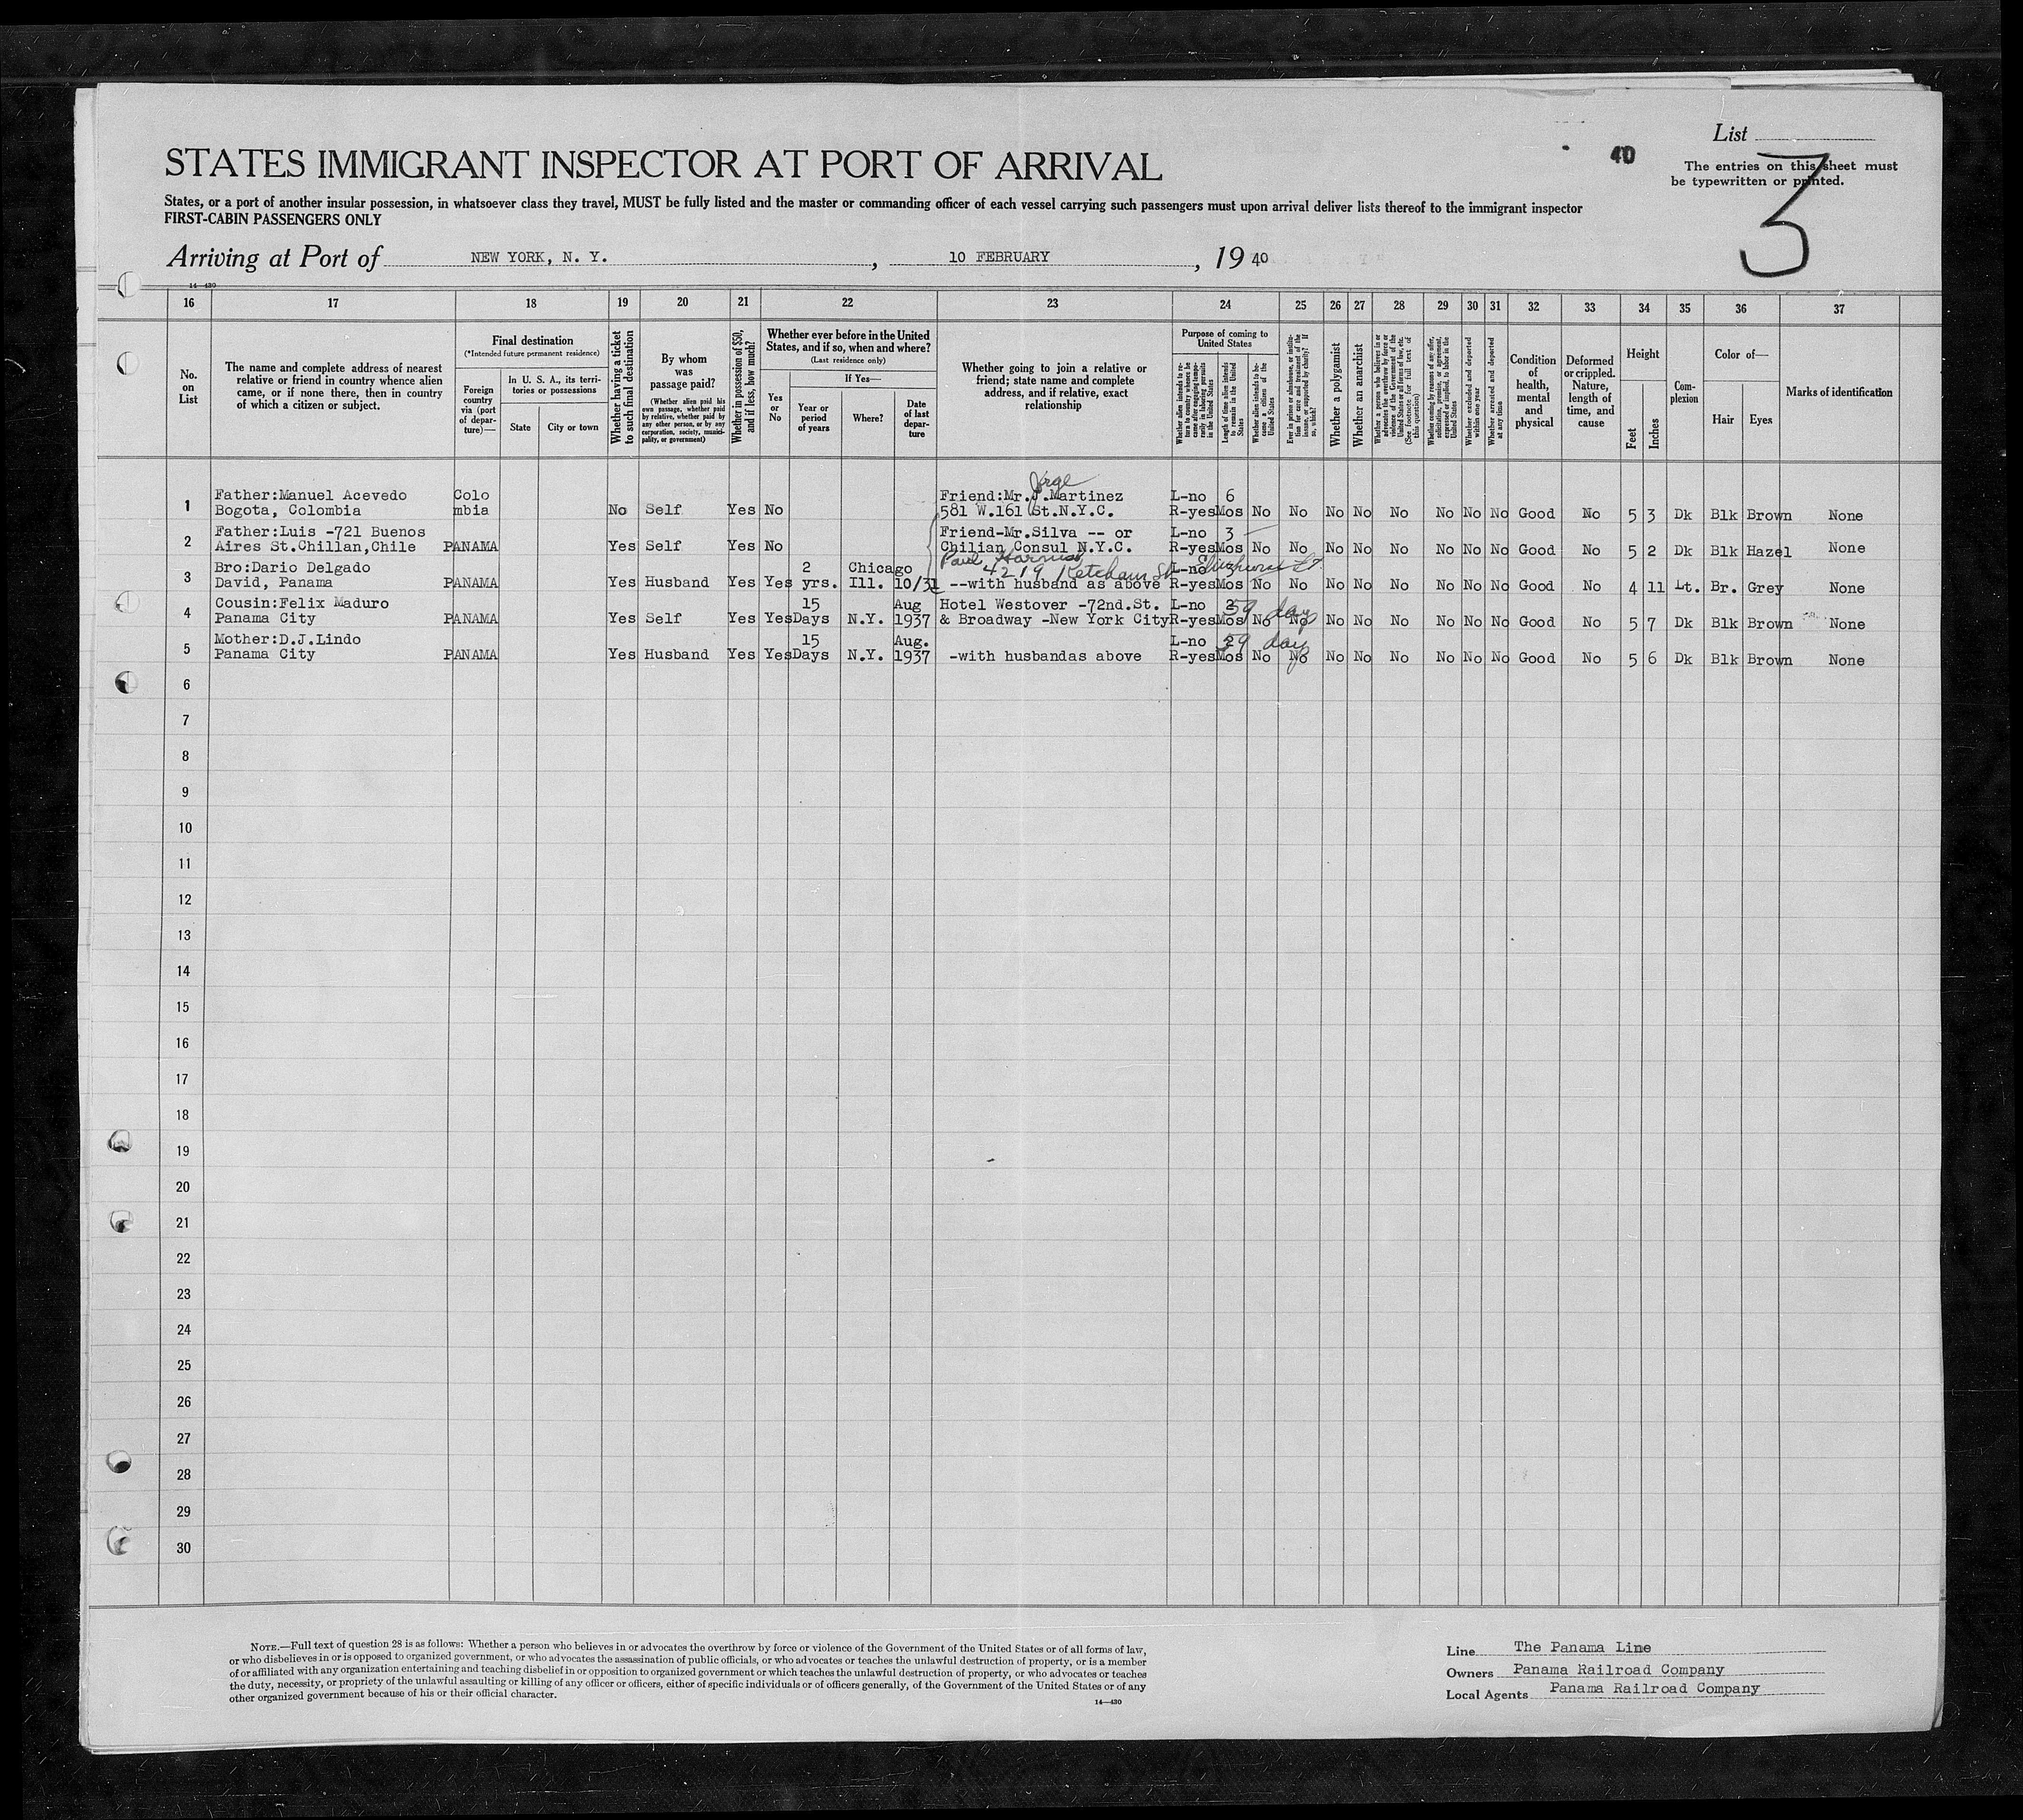 List
40
3
The entries on this sheet must
be typewritten or printed.
STATES IMMIGRANT INSPECTOR AT PORT OF ARRIVAL
States, or a port of another insular possession, in whatsoever class they travel, MUST be fully listed and the master or commanding officer of each vessel carrying such passengers must upon arrival deliver lists thereof to the immigrant inspector
FIRST-CABIN PASSENGERS ONLY
Arriving at Port of NEW YORK, N. Y. , 10 FEBRUARY , 19 40
14—430
16 17 18 19 20 21 22 23 24 25 26 27 28 29 30 31 32 33 34 35 36 37
No. on List
The name and complete address of nearest relative or friend in country whence alien came, or if none there, then in country of which a citizen or subject.
Final destination
(*Intended future permanent residence)
Foreign country via (port of departure)—
In U. S. A., its territories or possessions
State
City or town
Whether having a ticket to such final destination
By whom was passage paid?
(Whether alien paid his own passage, whether paid by relative, whether paid by any other person, or by any corporation, society, municipality, or government)
Whether in possession of $50, and if less, how much?
Whether ever before in the United States, and if so, when and where?
(Last residence only)
Yes or No
If Yes—
Year or period of years
Where?
Date of last departure
Whether going to join a relative or friend; state name and complete address, and if relative, exact relationship
Purpose of coming to United States
Whether alien intends to return to country whence he came after engaging temporarily in laboring pursuits in the United States
Length of time alien intends to remain in the United States
Whether alien intends to become a citizen of the United States
Ever in prison or almshouse, or institution for care and treatment of the insane, or supported by charity? If so, which?
Whether a polygamist
Whether an anarchist
Whether a person who believes in or advocates the overthrow by force or violence of the Government of the United States or all forms of law, etc. (See footnote for full text of this question)
Whether coming by reasons of any offer, solicitation, promise, or agreement, expressed or implied, to labor in the United States
Whether excluded and deported within one year
Whether arrested and deported at any time
Condition of health, mental and physical
Deformed or crippled. Nature, length of time, and cause
Height
Feet
Inches
Complexion
Color of—
Hair
Eyes
Marks of identification
Jorge
Father:Manuel Acevedo Colo Friend:Mr.J.Martinez L-no 6
1 Bogota, Colombia mbia No Self Yes No 581 W.161 St.N.Y.C. R-yes Mos No No No No No No No No Good No 5 3 Dk Blk Brown None
Father:Luis -721 Buenos Friend-Mr.Silva -- or L-no 3
2 Aires St.Chillan,Chile PANAMA Yes Self Yes No Chilian Consul N.Y.C. R-yes Mos No No No No No No No No Good No 5 2 Dk Blk Hazel None
Paul
4219 Ketcham St
Bro:Dario Delgado 2 Chicago L-no
3 David, Panama PANAMA Yes Husband Yes Yes yrs. Ill. 10/31 --with husband as above R-yes Mos No No No No No No No No Good No 4 11 Lt. Br. Grey None
Cousin:Felix Maduro 15 Aug Hotel Westover -72nd.St. L-no 2 59 days
4 Panama City PANAMA Yes Self Yes Yes Days N.Y. 1937 & Broadway -New York City R-yes Mos No No No No No No No No Good No 5 7 Dk Blk Brown None
Mother:D.J.Lindo 15 Aug. L-no 59 days
5 Panama City PANAMA Yes Husband Yes Yes Days N.Y. 1937 -with husbandas above R-yes Mos No No No No No No No No Good No 5 6 Dk Blk Brown None
6
7
8
9
10
11
12
13
14
15
16
17
18
19
20
21
22
23
24
25
26
27
28
29
30
NOTE.—Full text of question 28 is as follows: Whether a person who believes in or advocates the overthrow by force or violence of the Government of the United States or of all forms of law,
or who disbelieves in or is opposed to organized government, or who advocates the assassination of public officials, or who advocates or teaches the unlawful destruction of property, or is a member
of or affiliated with any organization entertaining and teaching disbelief in or opposition to organized government or which teaches the unlawful destruction of property, or who advocates or teaches
the duty, necessity, or propriety of the unlawful assaulting or killing of any officer or officers, either of specific individuals or of officers generally, of the Government of the United States or of any
other organized government because of his or their official character.
14—430
Line The Panama Line
Owners Panama Railroad Company
Local Agents Panama Railroad Company